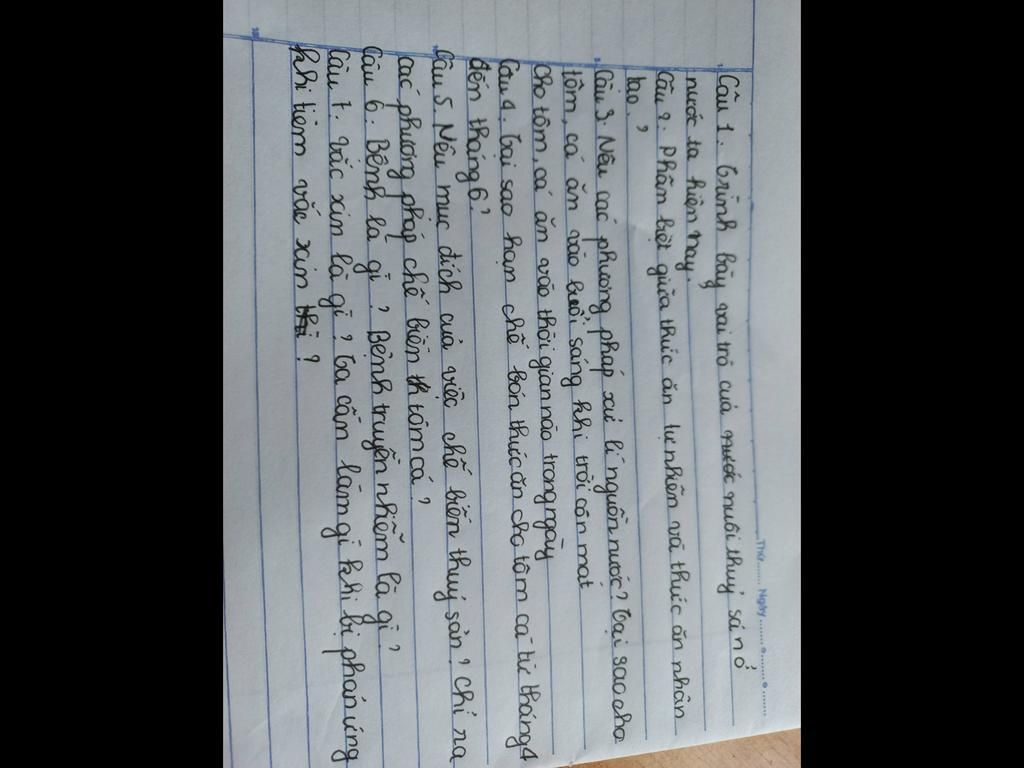 Thứ....... Ngày .......
Câu 1. Trình bày vai trò của nước nuôi thuỷ sản ở
nước ta hiện nay
Câu 2. Phân biệt giữa thức ăn tự nhiên và thức ăn nhân
tạo?
Câu 3. Nêu các phương pháp xử lí nguồn nước? Tại sao cho
tôm, cá ăn vào buổi sáng khi trời còn mát
Cho tôm, cá ăn vào thời gian nào trong ngày
Câu 4. Tại sao hạn chế bón thức ăn cho tôm cá từ tháng 4
đến tháng 6?
Câu 5. Nêu mục đích của việc chế biến thuỷ sản? chỉ ra
các phương pháp chế biến tôm cá?
Câu 6. Bệnh là gì? Bệnh truyền nhiễm là gì?
Câu 7. vắc xin là gì? Ta cần làm gì khi bị phản ứng
khi tiêm vắc xin?